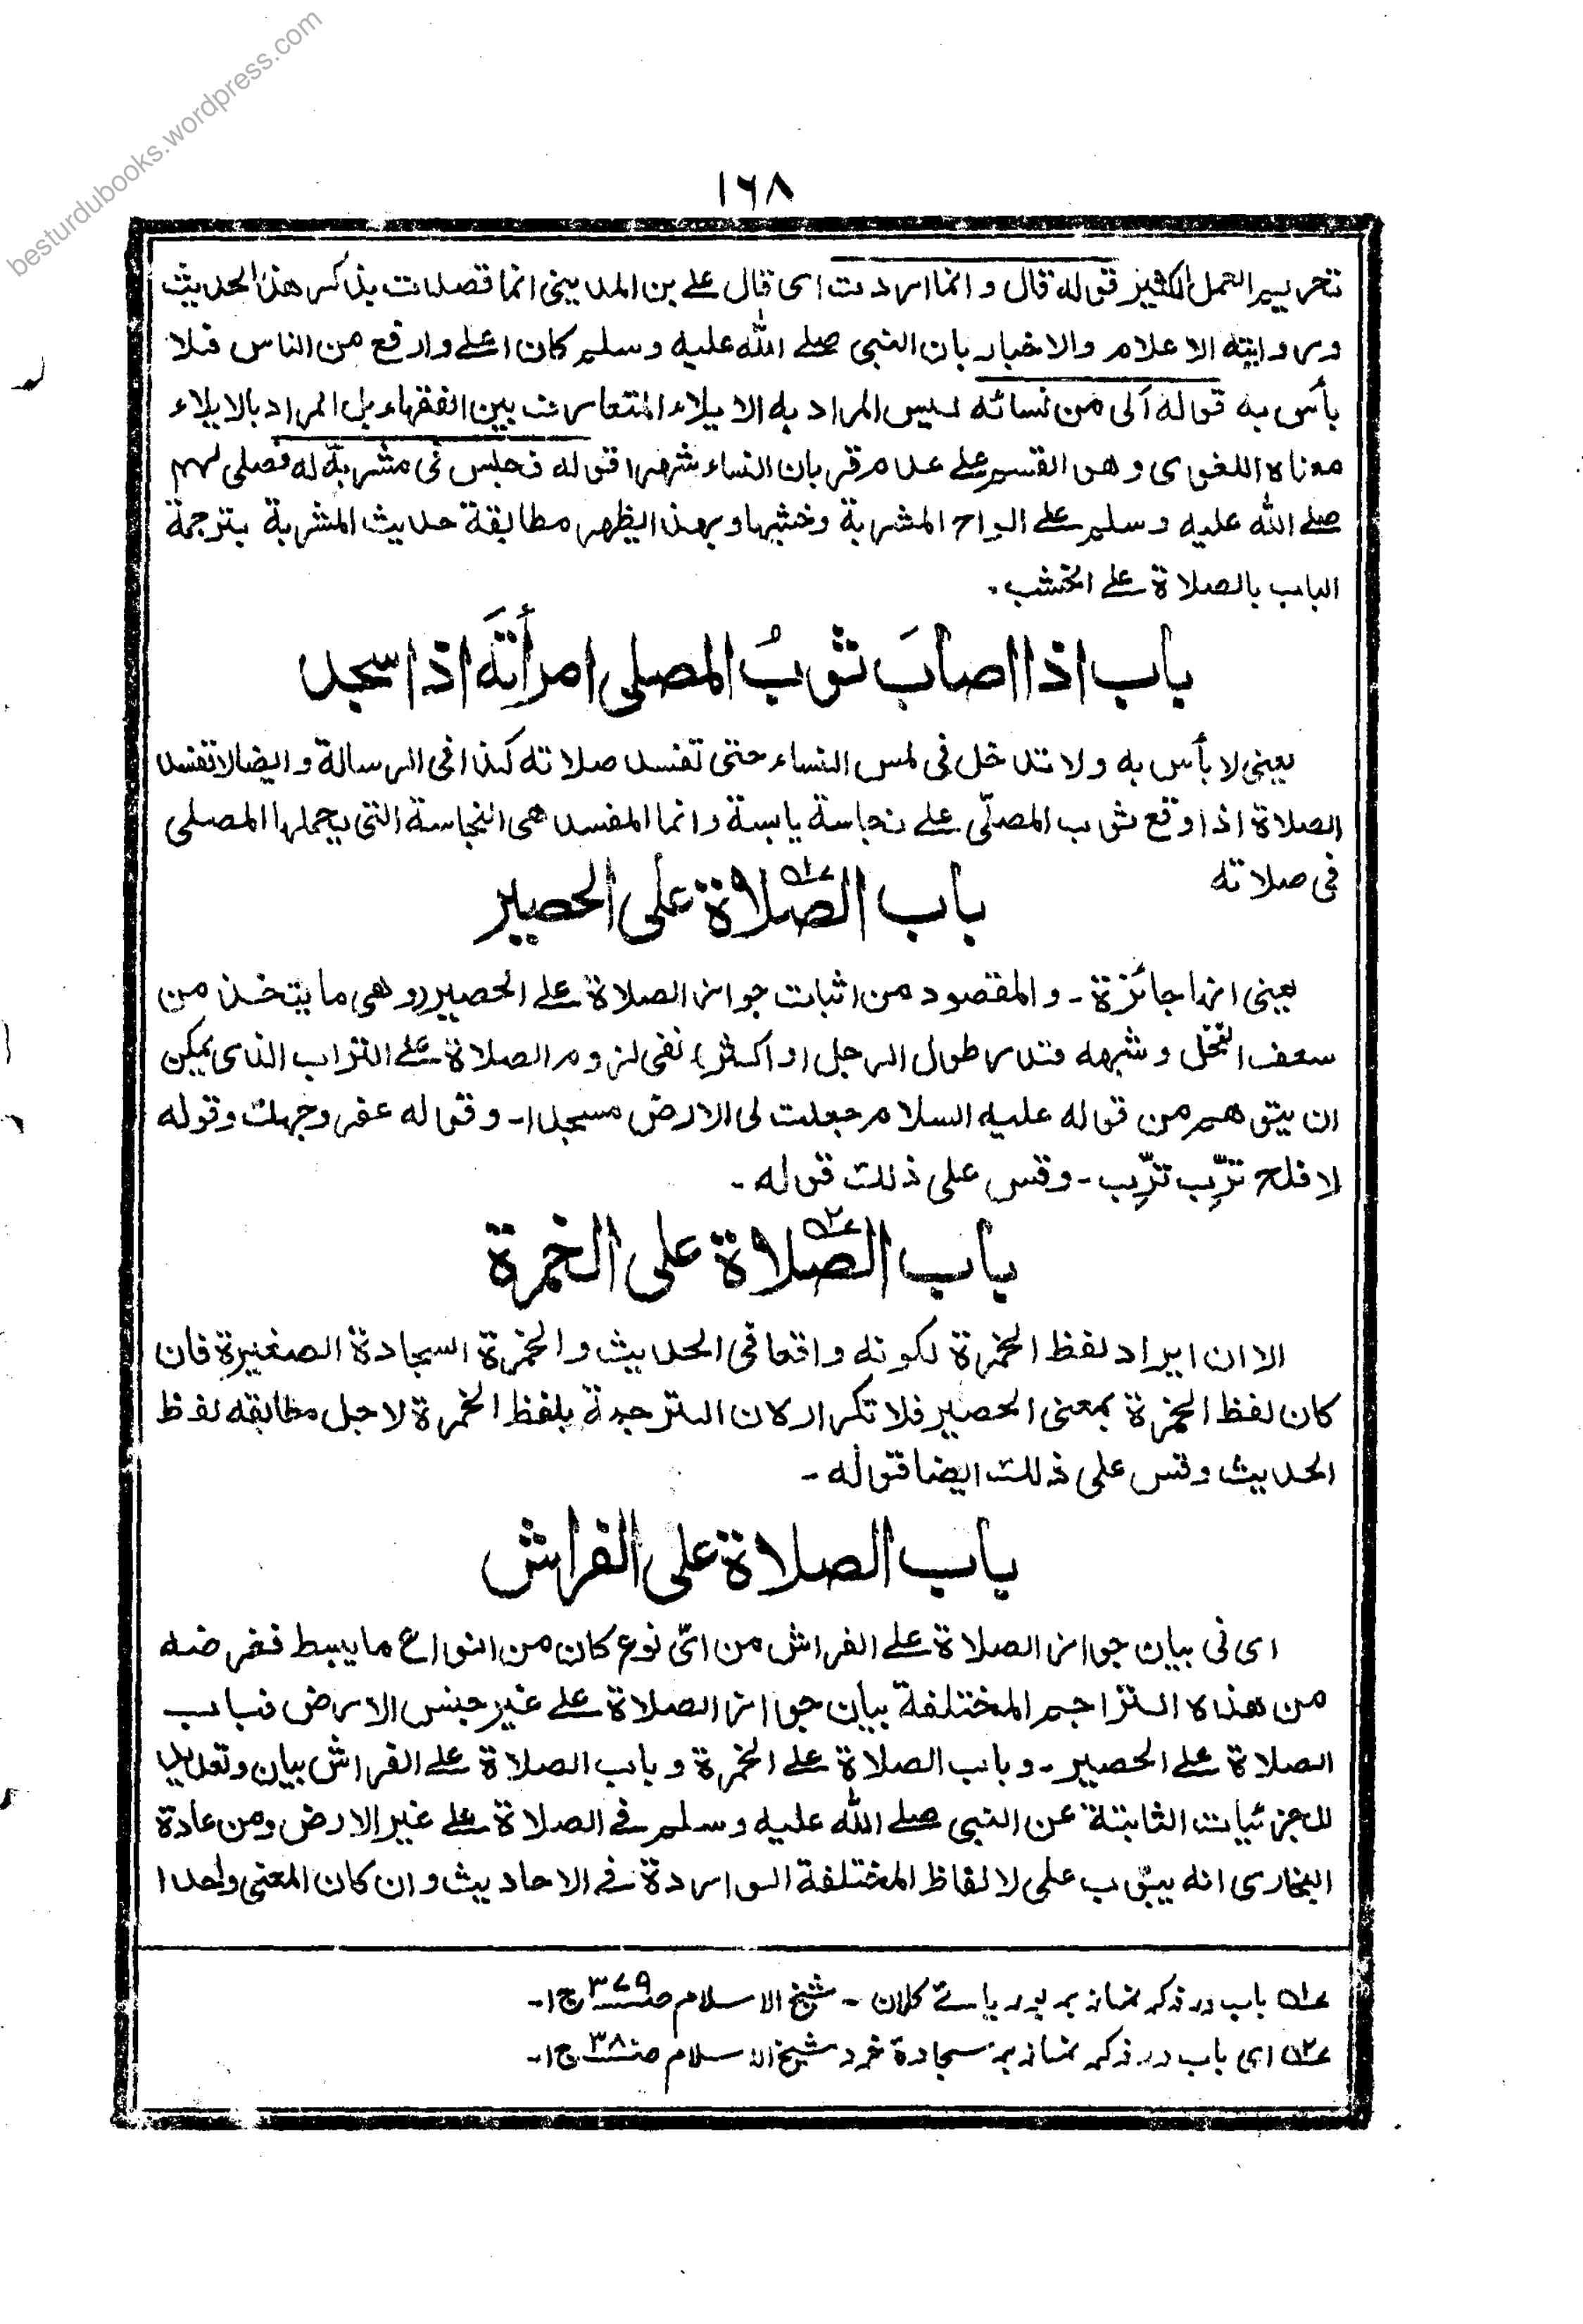 besturdubooks.wordpress.com
١٦٨
تحريم العمل الكثير قوله قال وانما اردت ای قال علے بن المديني انما قصدت بذكر هذا الحديث
وروايته الاعلام والاخبار بان النبی صلے الله عليه وسلم كان اعلے وارفع من الناس فلا
بأس به قوله آلی من نسائه ليس المراد به الايلاء المتعارف بين الفقهاء بل المراد بالايلاء
معناه اللغوی وهو القسم علے عدم قربان النساء شهرا قوله فجلس فی مشربة له فصلی لهم
صلے الله عليه وسلم علے الواح المشربة وخشبها وبهذا يظهر مطابقة حديث المشربة بترجمة
الباب بالصلاة علے الخشب۔
باب اذا اصابَ ثوبُ المصلی امرأتَه اذا سجد
يعنی لا بأس به ولا تدخل فی لمس النساء حتی تفسد صلاته كذا فی الرسالة وايضا لا تفسد
الصلاة اذا وقع ثوب المصلّی علے نجاسة يابسة وانما المفسد هی النجاسة التی يحملها المصلی
فی صلاته
باب الصلاة علی الحصير ؎١
يعنی انها جائزة ۔ والمقصود من اثبات جواز الصلاة علے الحصير (وهی ما يتخذ من
سعف النخل وشبهه قدر طول الرجل او اكثر) نفی لزوم الصلاة علے التراب الذی يمكن
ان يتوهم من قوله عليه السلام جعلت لی الارض مسجدا ۔ وقوله عفر وجهك وقوله
لافلح ترّب ترّب ۔ وقس علی ذلك قوله ۔
باب الصلاة علی الخمرة ؎٢
الا ان ايراد لفظ الخمرة لكونه واقعا فی الحديث والخمرة السجادة الصغيرة فان
كان لفظ الخمرة بمعنی الحصير فلا تكرار لان الترجمة بلفظ الخمرة لاجل مطابقه لفظ
الحديث وقس علی ذلك ايضا قوله ۔
باب الصلاة علی الفراش
ای فی بيان جواز الصلاة علے الفراش من ایّ نوع كان من انواع ما يبسط فغرضه
من هذه التراجم المختلفة بيان جواز الصلاة علے غير جنس الارض فباب
الصلاة علے الحصير ۔ وباب الصلاة علے الخمرة وباب الصلاة علے الفراش بيان وتعديل
للجزئيات الثابتة عن النبی صلے الله عليه وسلم فے الصلاة علے غير الارض ومن عادة
البخاری انه يبوّب علی لالفاظ المختلفة الواردة فے الاحاديث وان كان المعنی واحدا
؎١ باب در ذكر نماز بر بوريائے كلان ۔ شيخ الاسلام ص ٣٧٩ ج ١ ۔
؎٢ ای باب در ذكر نماز بر سجادة خرد شيخ الاسلام ص ٣٨٠ ج ١ ۔